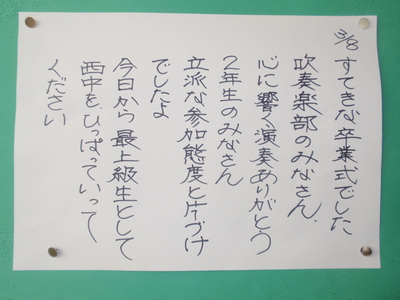 3/8
すてきな卒業式でした
吹奏楽部のみなさん、
心に響く演奏ありがとう
2年生のみなさん
立派な参加態度と片づけ
でしたよ
今日から最上級生として
西中を、ひっぱっていって
ください